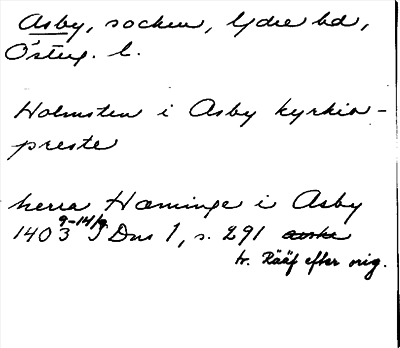 Asby, socken, Ydre hd,
Österg. l.
Holmsten i Asby kyrkio-
preste
herra Hæminge i Asby
1403 9-14/9 SDns 1, s. 291
tr. Rääf efter orig.